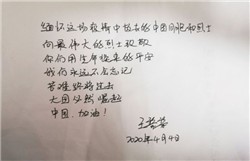 缅怀这场疫情中逝去的中国同胞和烈士
向最伟大的烈士致敬
你们用生命换来的平安
我们永远不会忘记
苦难终将过去
大国必然崛起
中国，加油！
2020年4月4日